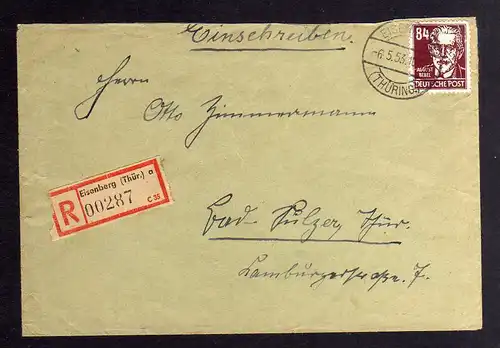 Einschreiben.
EISEN
-6.5.53.1
(THÜRING.)
84
AUGUST
BEBEL
DEUTSCHE POST
Herrn
Otto Zimmermann
R
Eisenberg (Thür.) a
00287
C 35
Bad Sulza, Thür.
Lamburgerstraße 7.